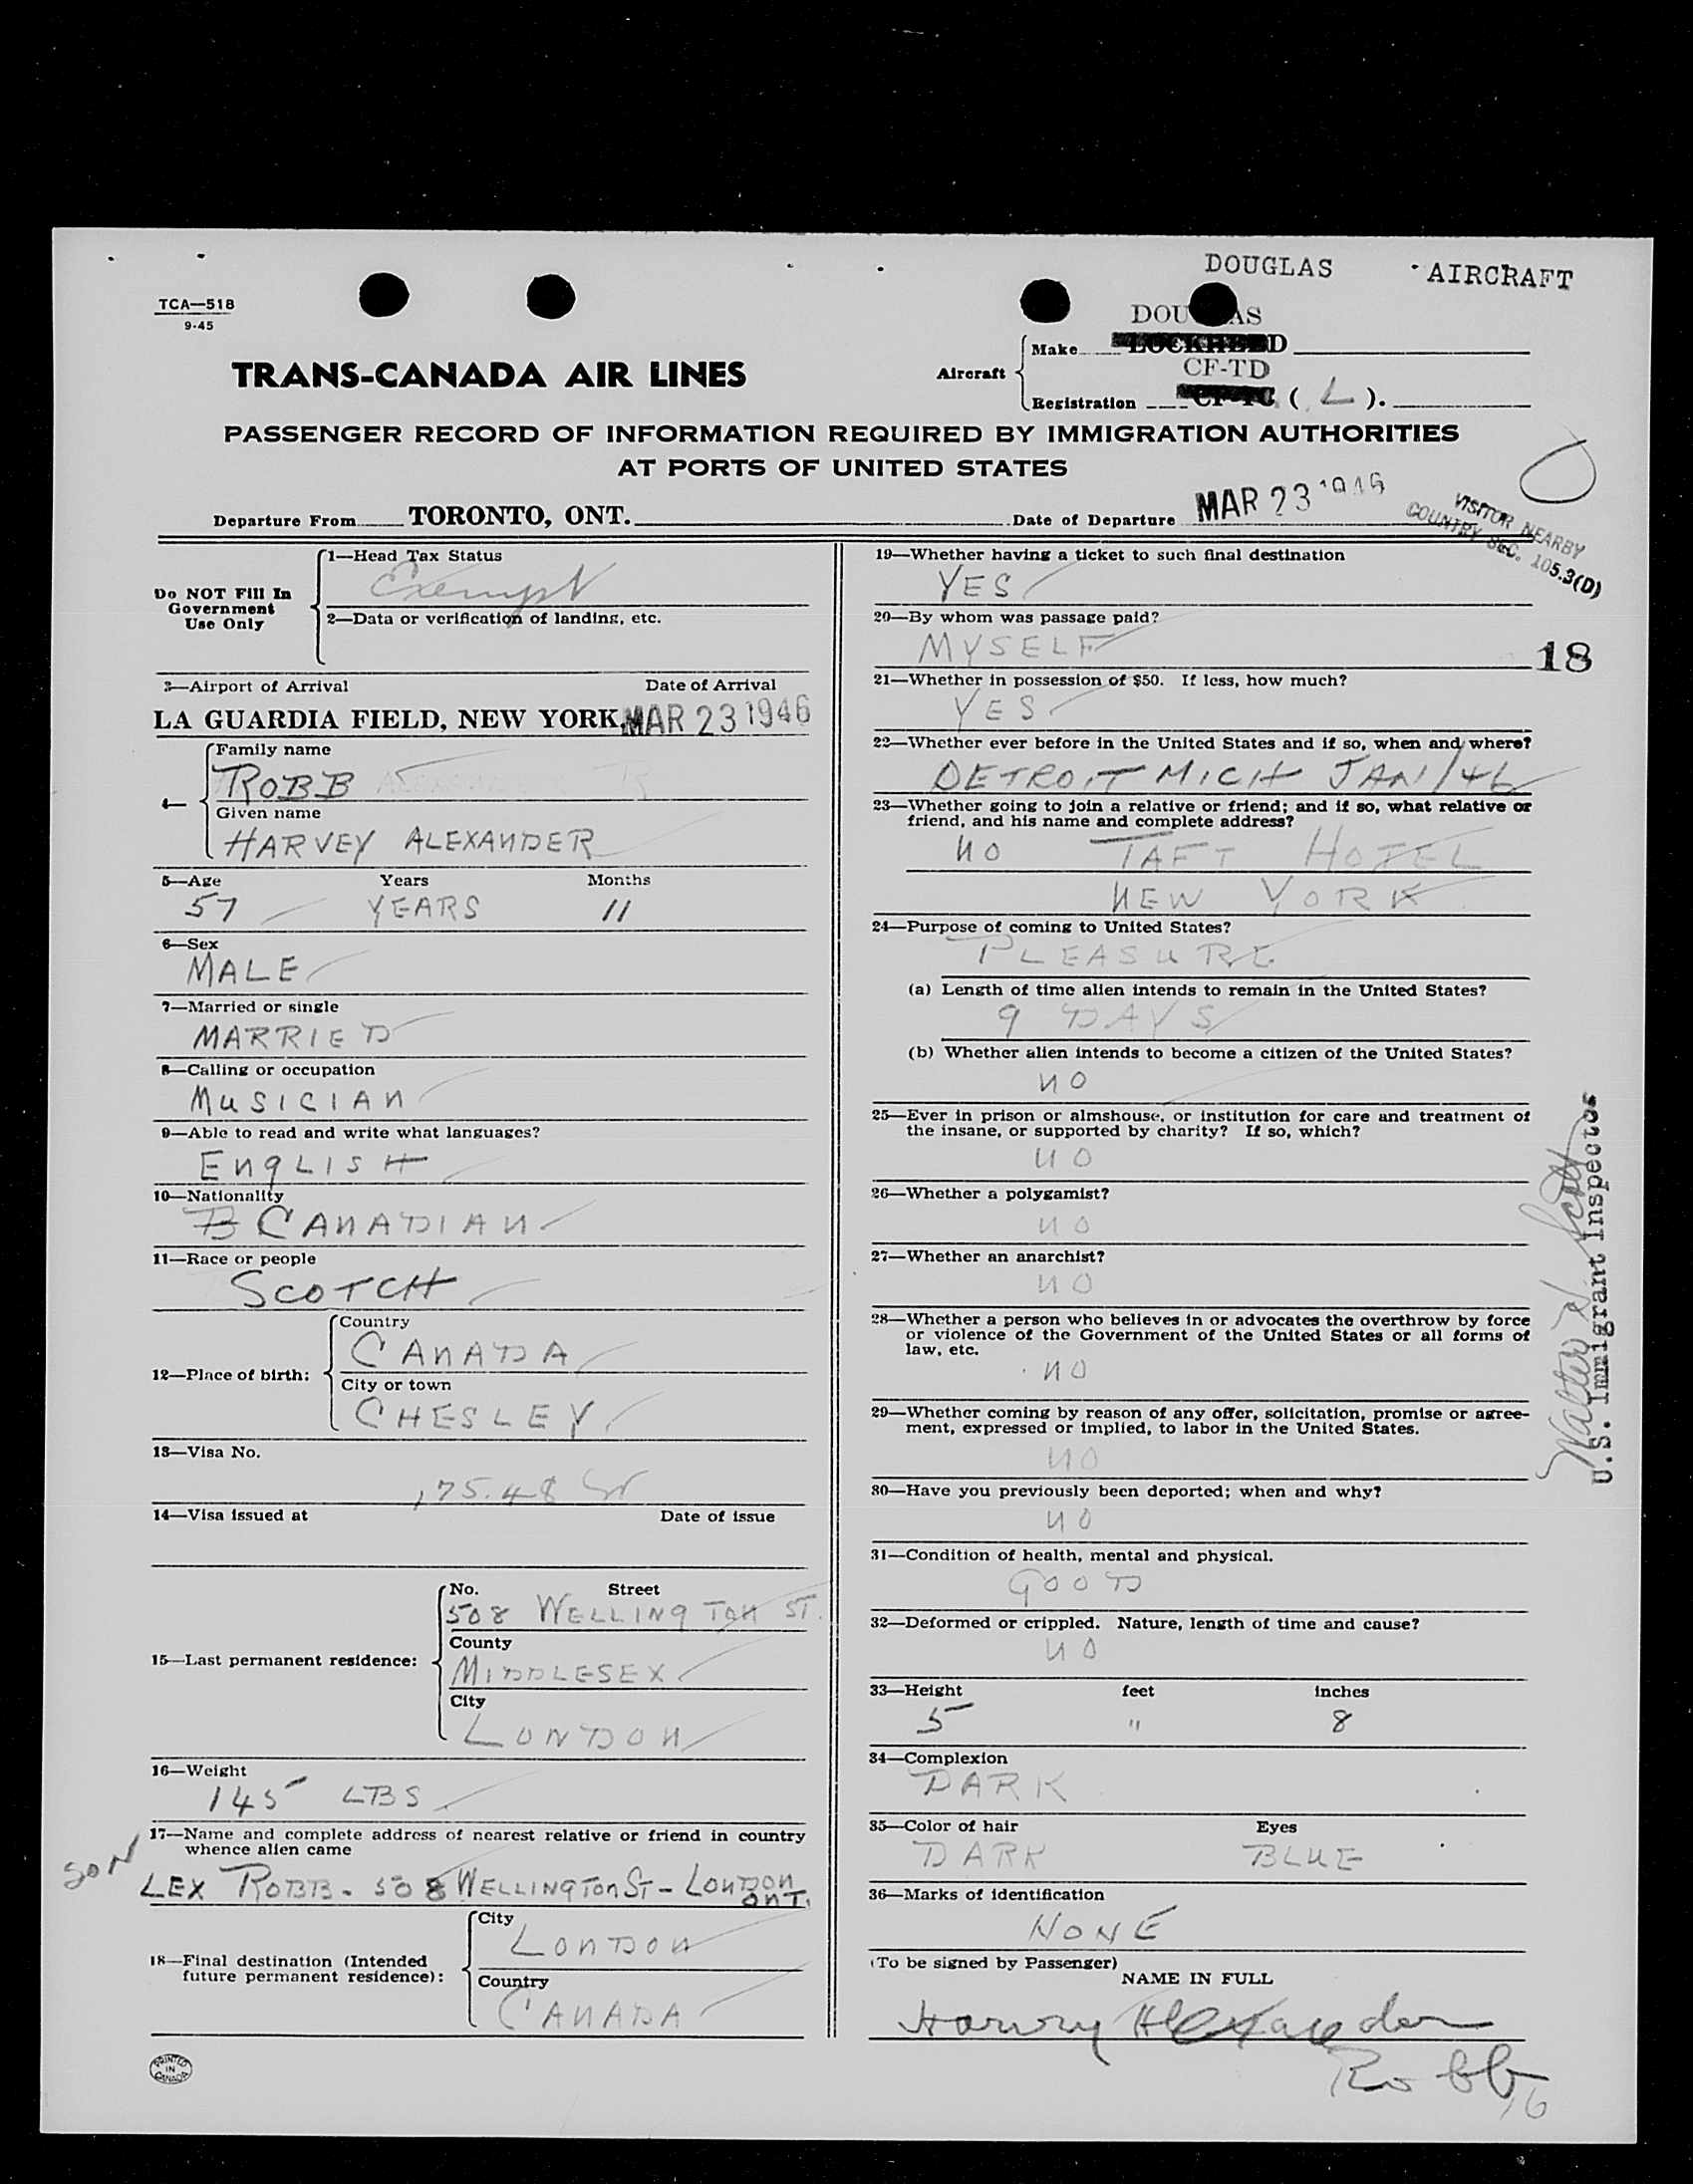 DOUGLAS AIRCRAFT
TCA—518
9-45
DOUGLAS
Make LOCKHEED
TRANS-CANADA AIR LINES
Aircraft
CF-TD
Registration CF-TC ( L ).
PASSENGER RECORD OF INFORMATION REQUIRED BY IMMIGRATION AUTHORITIES
AT PORTS OF UNITED STATES
Departure From TORONTO, ONT.
Date of Departure MAR 23 1946
VISITOR NEARBY
COUNTRY SEC. 105.3(D)
Do NOT Fill In
Government
Use Only
1—Head Tax Status
Exempt
2—Data or verification of landing, etc.
3—Airport of Arrival Date of Arrival
LA GUARDIA FIELD, NEW YORK, MAR 23 1946
4—
Family name
ROBB
Given name
HARVEY ALEXANDER
5—Age Years Months
57 YEARS 11
6—Sex
MALE
7—Married or single
MARRIED
8—Calling or occupation
MUSICIAN
9—Able to read and write what languages?
ENGLISH
10—Nationality
B CANADIAN
11—Race or people
SCOTCH
12—Place of birth:
Country
CANADA
City or town
CHESLEY
13—Visa No.
175.48
14—Visa issued at Date of issue
15—Last permanent residence:
No. Street
508 WELLINGTON ST.
County
MIDDLESEX
City
LONDON
16—Weight
145 LBS
17—Name and complete address of nearest relative or friend in country
whence alien came
SON
LEX ROBB - 508 WELLINGTON ST - LONDON
ONT.
18—Final destination (Intended
future permanent residence):
City
LONDON
Country
CANADA
PRINTED
IN
CANADA
19—Whether having a ticket to such final destination
YES
20—By whom was passage paid?
MYSELF
18
21—Whether in possession of $50. If less, how much?
YES
22—Whether ever before in the United States and if so, when and where?
DETROIT MICH JAN/46
23—Whether going to join a relative or friend; and if so, what relative or
friend, and his name and complete address?
NO TAFT HOTEL
NEW YORK
24—Purpose of coming to United States?
PLEASURE
(a) Length of time alien intends to remain in the United States?
9 DAYS
(b) Whether alien intends to become a citizen of the United States?
NO
25—Ever in prison or almshouse, or institution for care and treatment of
the insane, or supported by charity? If so, which?
NO
26—Whether a polygamist?
NO
27—Whether an anarchist?
NO
28—Whether a person who believes in or advocates the overthrow by force
or violence of the Government of the United States or all forms of
law, etc.
NO
29—Whether coming by reason of any offer, solicitation, promise or agree-
ment, expressed or implied, to labor in the United States.
NO
30—Have you previously been deported; when and why?
NO
31—Condition of health, mental and physical.
GOOD
32—Deformed or crippled. Nature, length of time and cause?
NO
33—Height feet inches
5 " 8
34—Complexion
DARK
35—Color of hair Eyes
DARK BLUE
36—Marks of identification
NONE
(To be signed by Passenger)
NAME IN FULL
Harvey Alexander
Robb
16
Walter
U.S. Immigrant Inspector